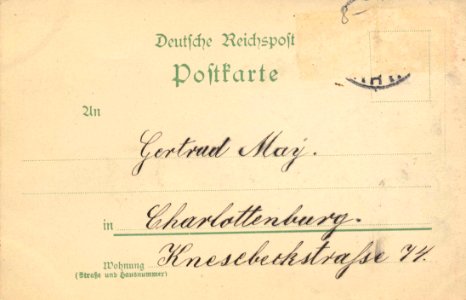 Deutsche Reichspost
Postkarte
An
Gertrud May.
in Charlottenburg.
Wohnung Knesebeckstraße 74.
(Straße und Hausnummer)